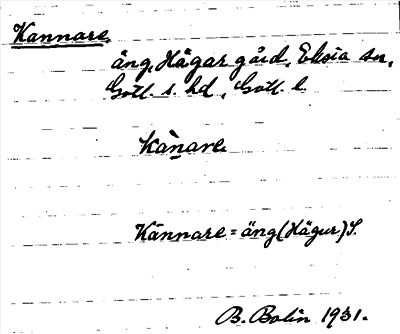 Kannare
äng, Hägur gård, Eksta sn,
Gotl. s. hd, Gotl. l.
Kànare
Kànnare = äng (Hägur) S.
B. Bolin 1931.